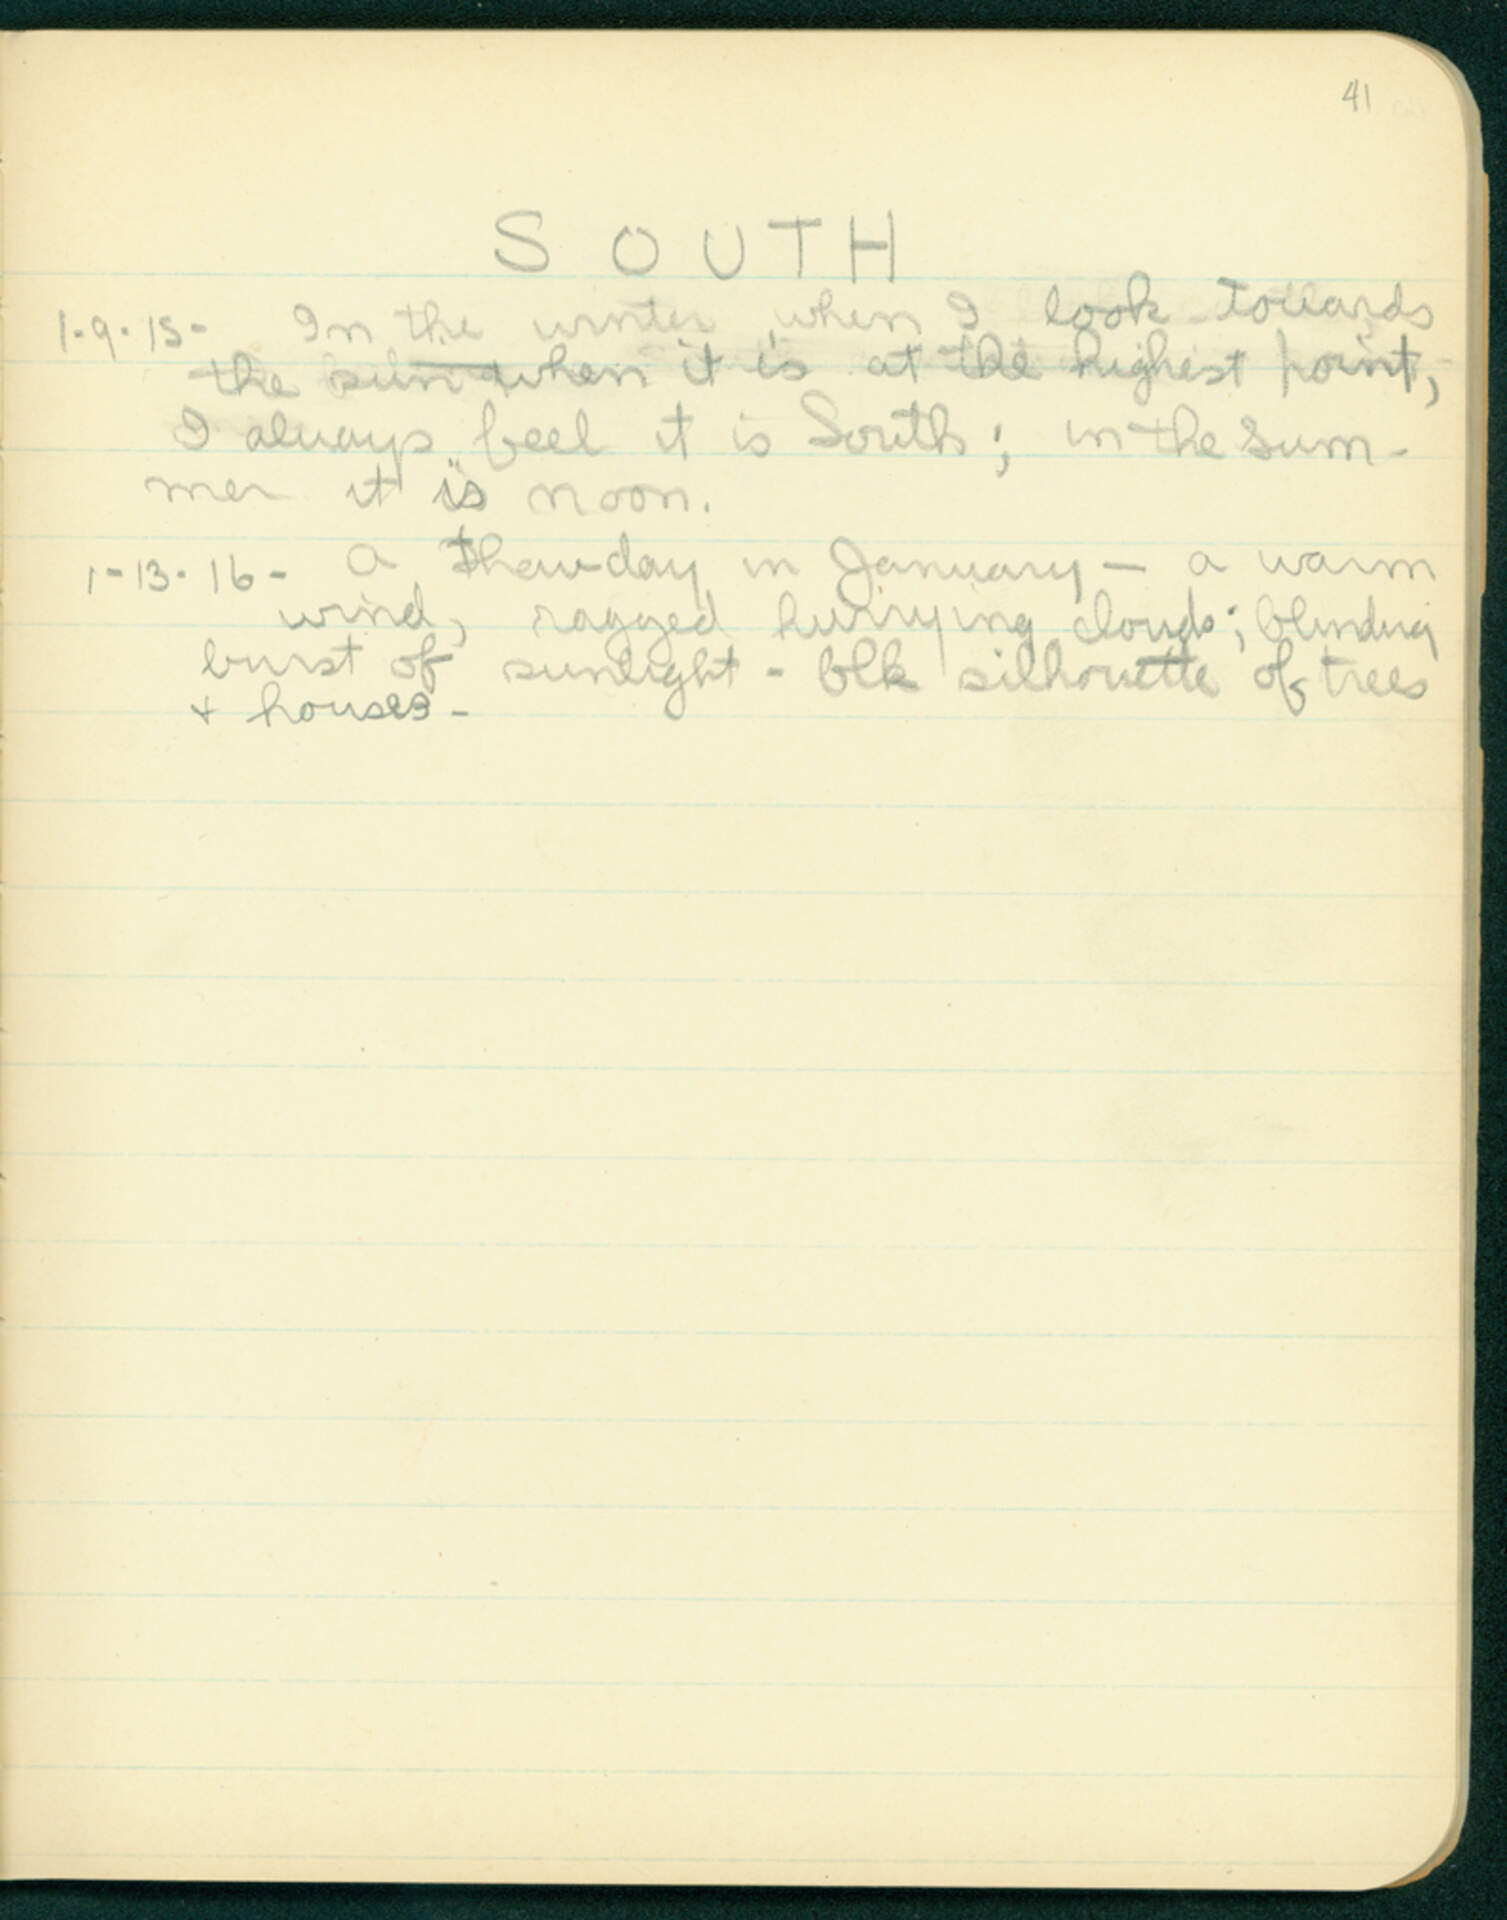 41
SOUTH
1-9-15- In the winter when I look towards
the sun when it is at the highest point,
I always feel it is South; in the sum-
mer it is noon.
1-13-16- A thaw-day in January — a warm
wind, ragged hurrying clouds; blinding
burst of sunlight - blk silhouette of trees
+ houses -